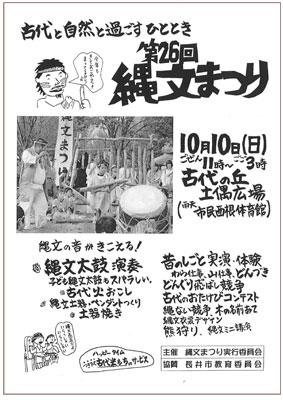 古代と自然と過ごすひととき
第26回
縄文まつり
縄文まつり
10月10日(日)
ごぜん11時〜ごご3時
古代の丘
土偶広場
(雨天 市民西根体育館)
縄文の音がきこえる!
縄文太鼓演奏
子ども縄文太鼓もスバラしい。
古代火おこし
縄文土鈴・ペンダントづくり
土器焼き
昔のしごと実演・体験
わら仕事、山仕事、どんづき
どんぐり飛ばし競争
古代のおたけびコンテスト
縄ない競争、木の名前あて
縄文衣装デザイン
熊狩り、縄文ミニ講話
ハッピータイム
主催 縄文まつり実行委員会
協賛 長井市教育委員会